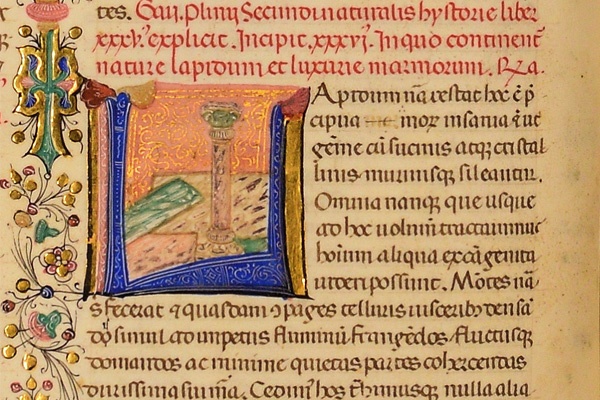 tes. Gaii. Plinij Secundi naturalis hystorie liber
xxxv. explicit. Incipit. xxxvj. In quo continent
nature lapidum et luxurie marmorum. Rꝫa.
Lapidum nā restat hoc ē p̄
cipua mor insania ut
gēme cū sucinis atqꝫ cristal
linis murrinisqꝫ sileantur.
Omnia nanqꝫ que usque
ad hoc uolum̄ tractauimus
hoīum aliqua excā genita
uideri possunt. Mōtes nā
s fecerat ⁊ quasdam ꝯpages telluris uisceribꝰ densā
simul ad impetus fluminū frangēdos fluctusqꝫ
domandos ac minime quietas partes cohercendas
durissima sui mā. Cedim hos t̄himusqꝫ nulla alia